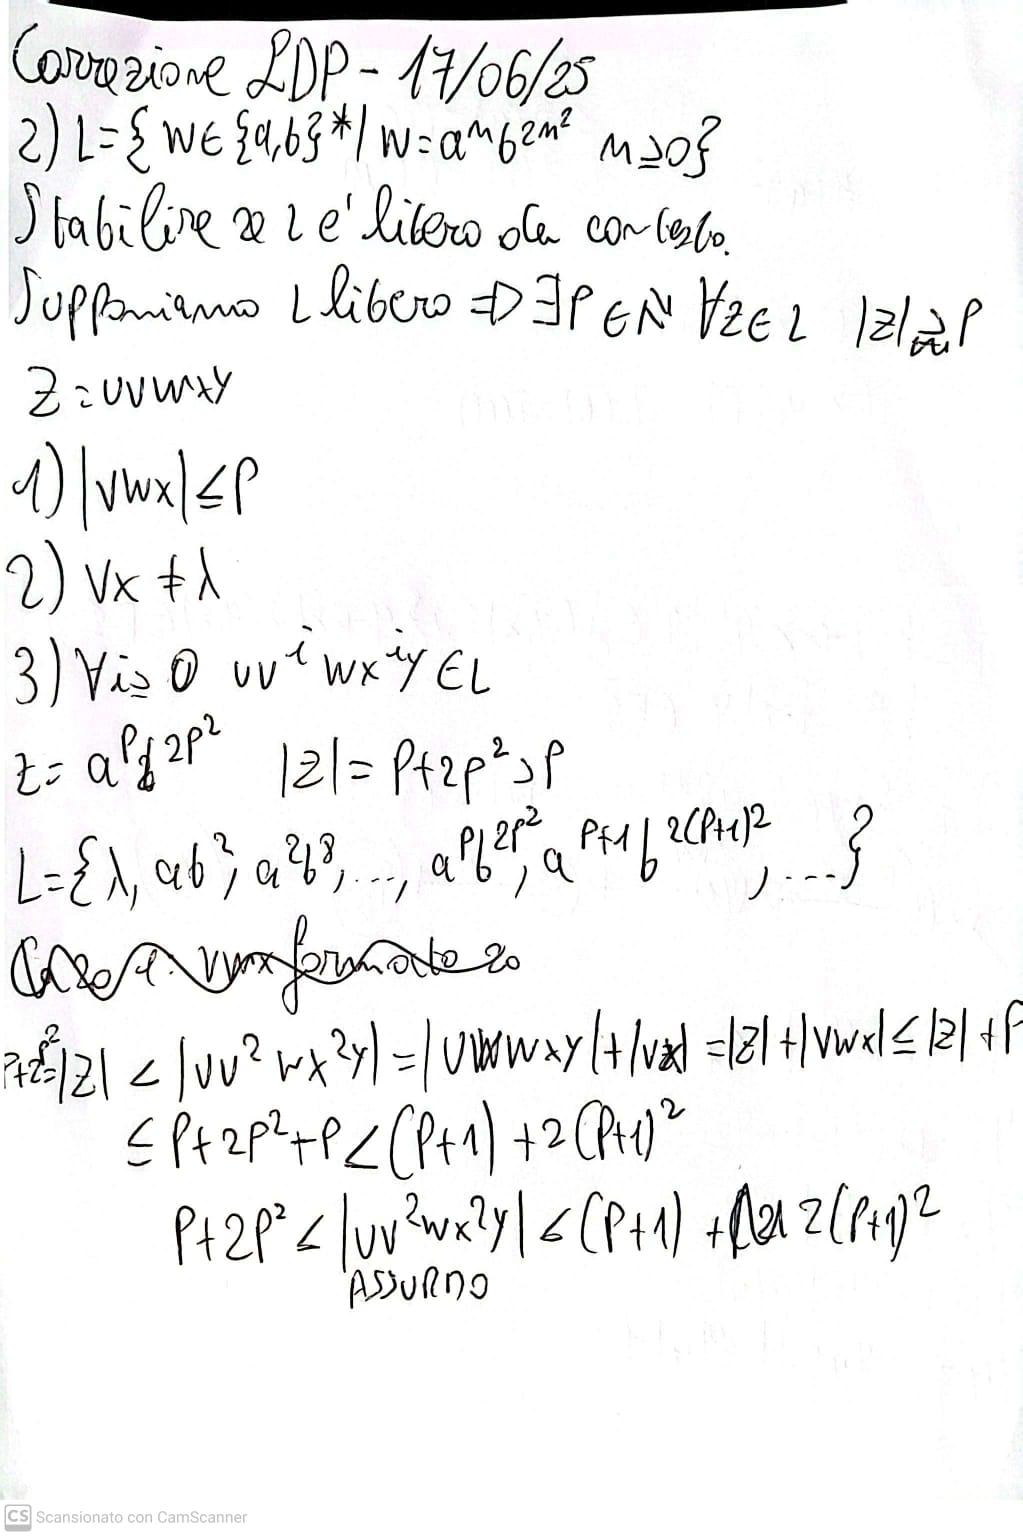 Correzione LDP - 17/06/25
2) L={ W∈{a,b}* | W=aⁿb²ⁿ² n≥0}
Stabilire se L e' libero da contesto.
Supponiamo L libero => ∃P∈N ∀z∈L |z|≥P
Z=uvwxy
1) |vwx|≤P
2) vx ≠ λ
3) ∀i≥0 uvⁱwxⁱy ∈L
z= a^P b^2P² |z|= P+2P²>P
L={λ, ab², a²b⁸, ..., a^P b^2P², a^P+1 b^2(P+1)², ...}
P+2P²=|z| < |uv²wx²y| = |uvwxy|+|vx| =|z|+|vwx|≤|z|+P
≤ P+2P²+P<(P+1)+2(P+1)²
P+2P² < |uv²wx²y| < (P+1) + 2(P+1)²
ASSURDO
CS Scansionato con CamScanner